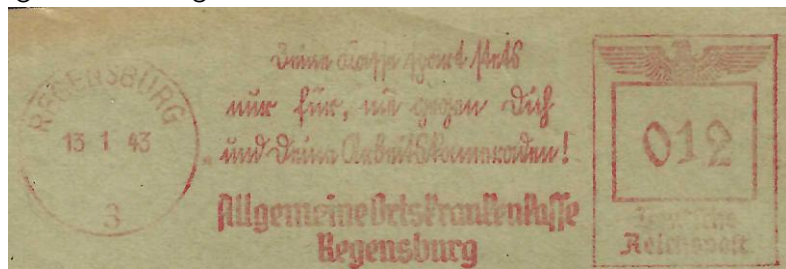 REGENSBURG
13 1 43
3
Deine Kasse spart stets
nur für, nie gegen Dich
und Deine Arbeitskameraden!
Allgemeine Ortskrankenkasse
Regensburg
012
Deutsche
Reichspost